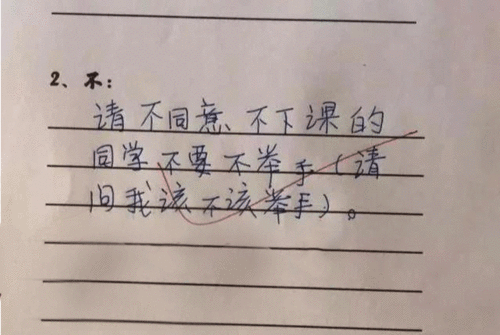 2、不：
请不同意、不下课的
同学不要不举手（请
问我该不该举手）。